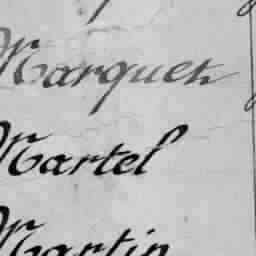 Marquet
Martel
Martin